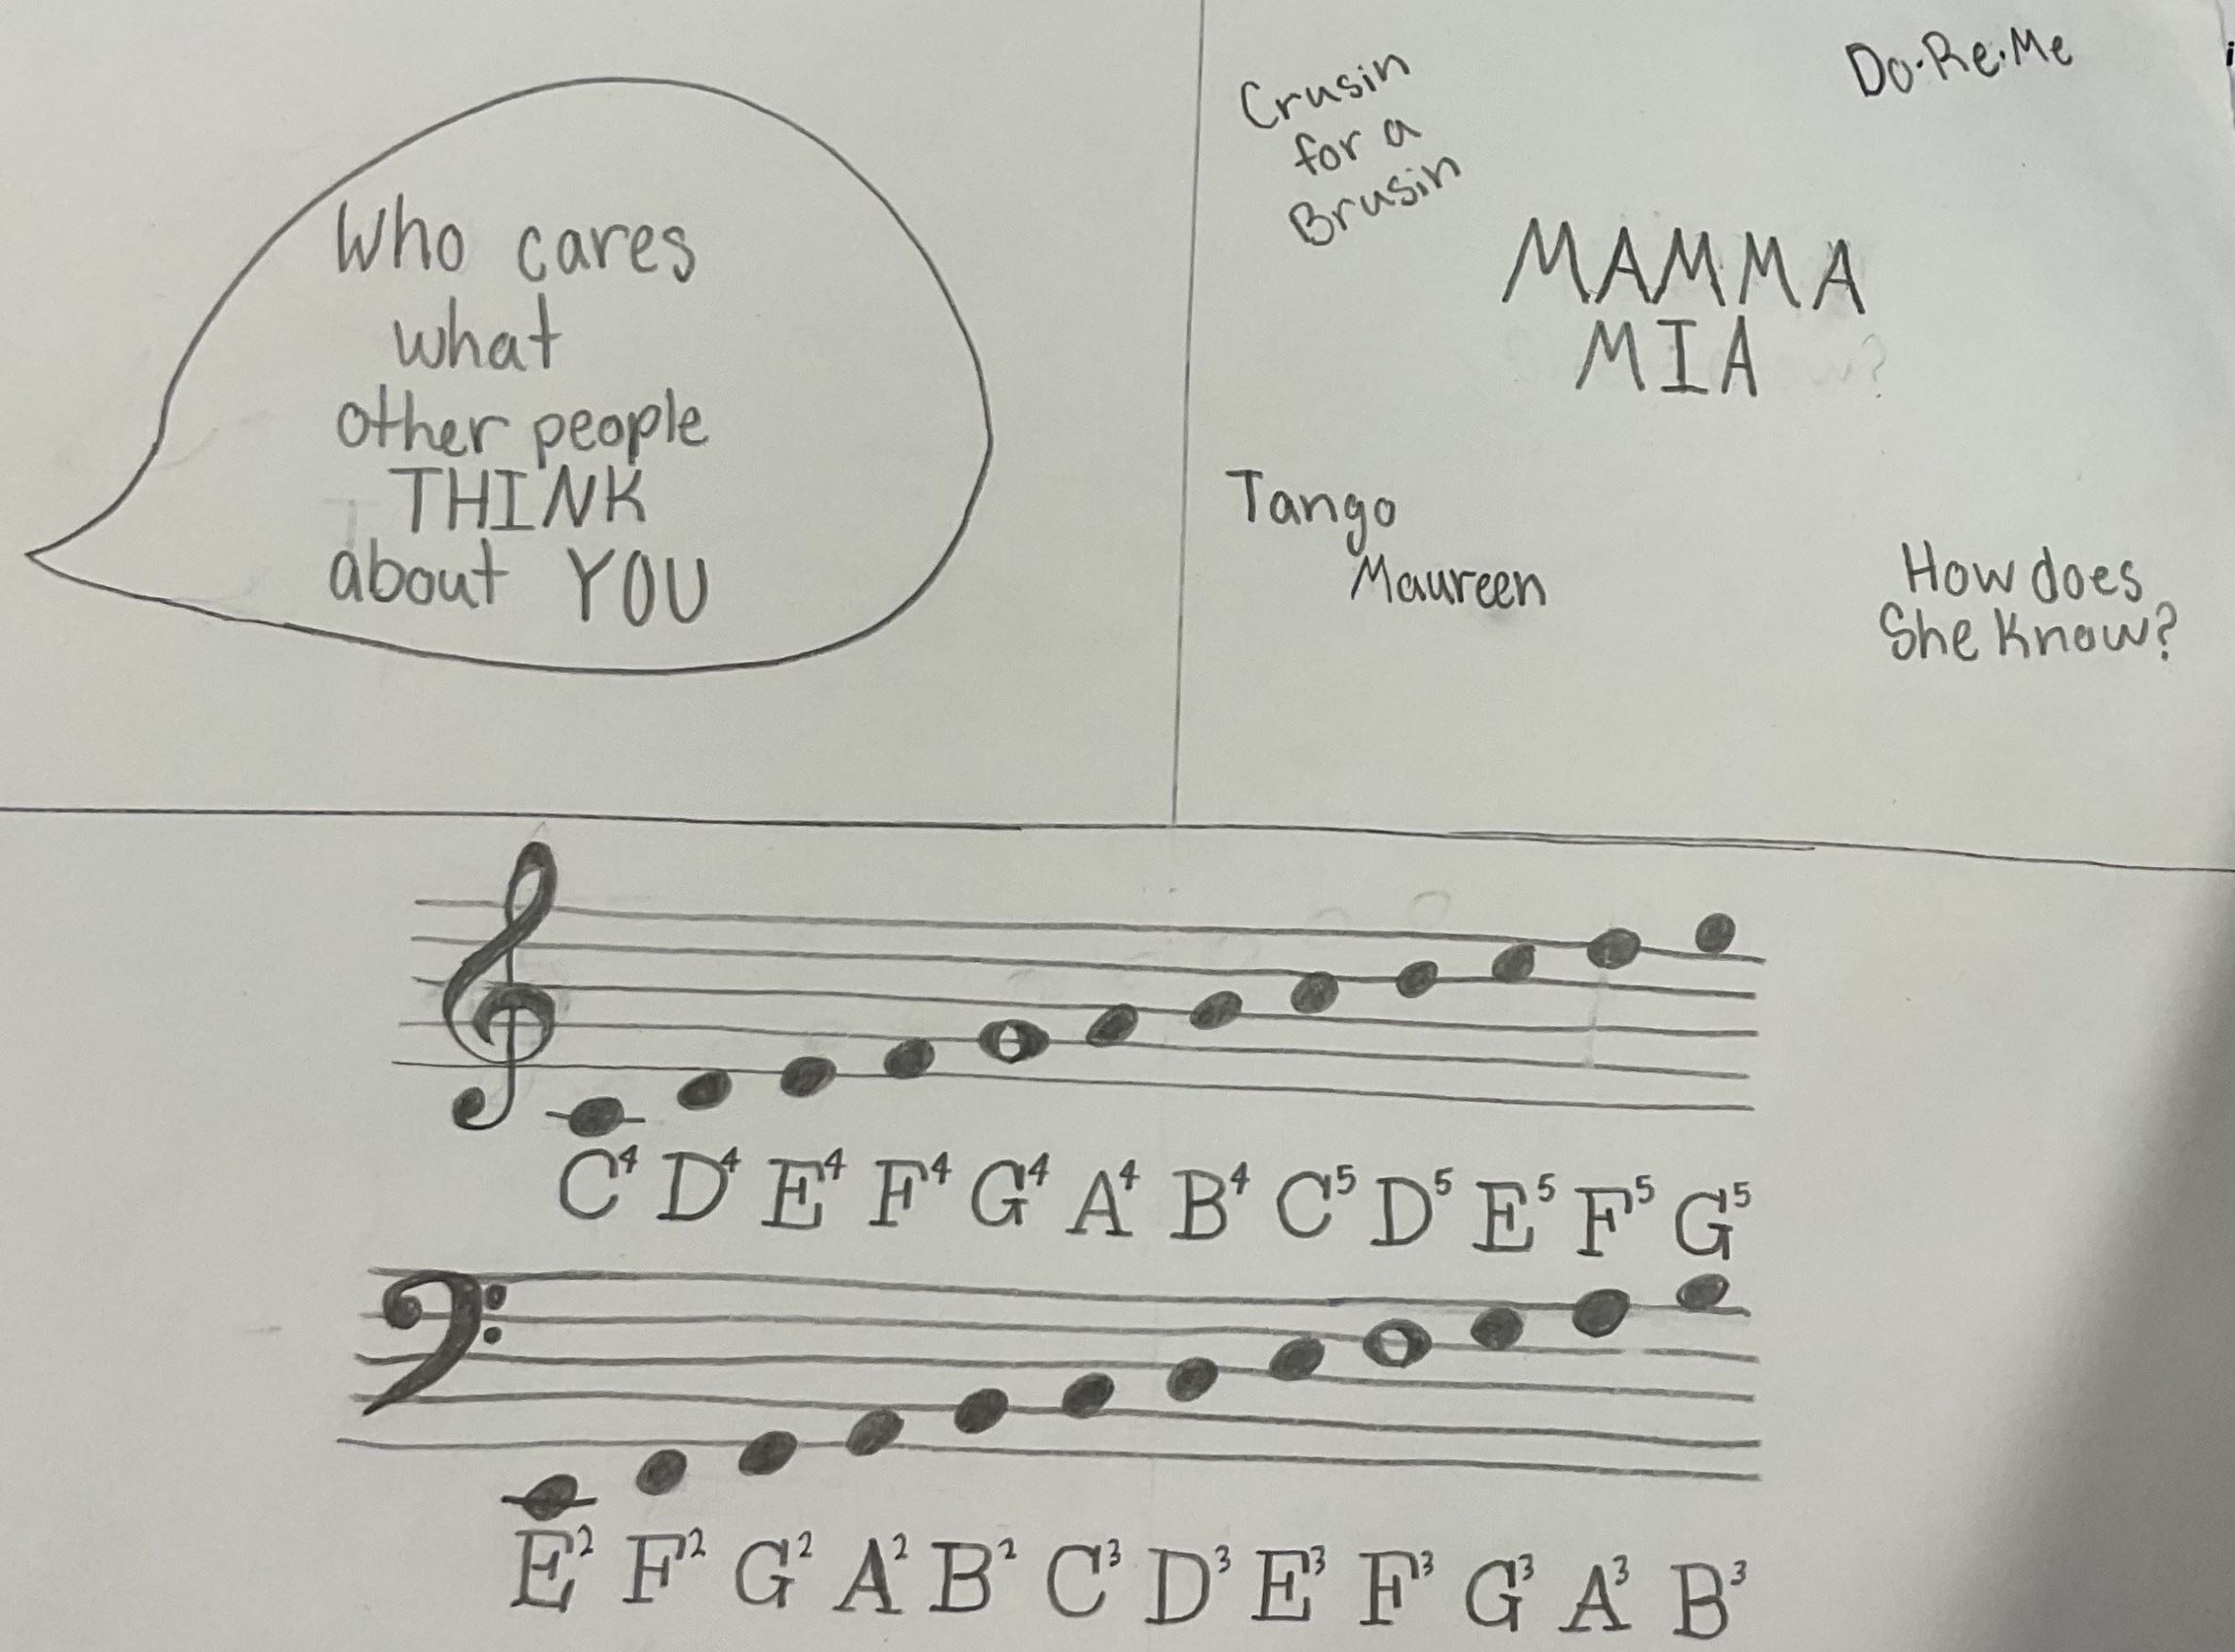 Who cares
what
other people
THINK
about YOU
Crusin
for a
Brusin
Do·Re·Me
MAMMA
MIA
Tango
Maureen
How does
She Know?
C⁴ D⁴ E⁴ F⁴ G⁴ A⁴ B⁴ C⁵ D⁵ E⁵ F⁵ G⁵
E² F² G² A² B² C³ D³ E³ F³ G³ A³ B³